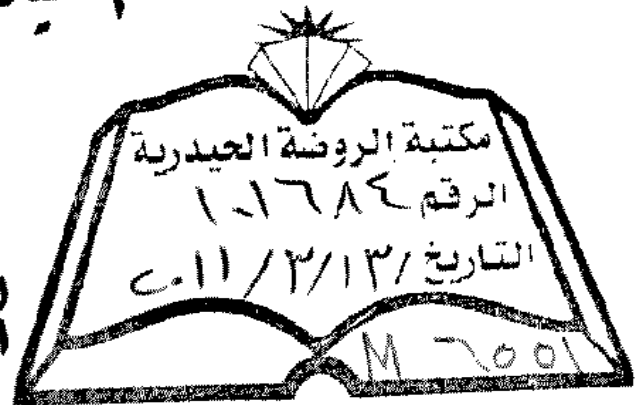 مكتبة الروضة الحيدرية
الرقم ١٠١٦٨٤
التاريخ /١٣/٣/٢٠١١
M ٦٥٥١